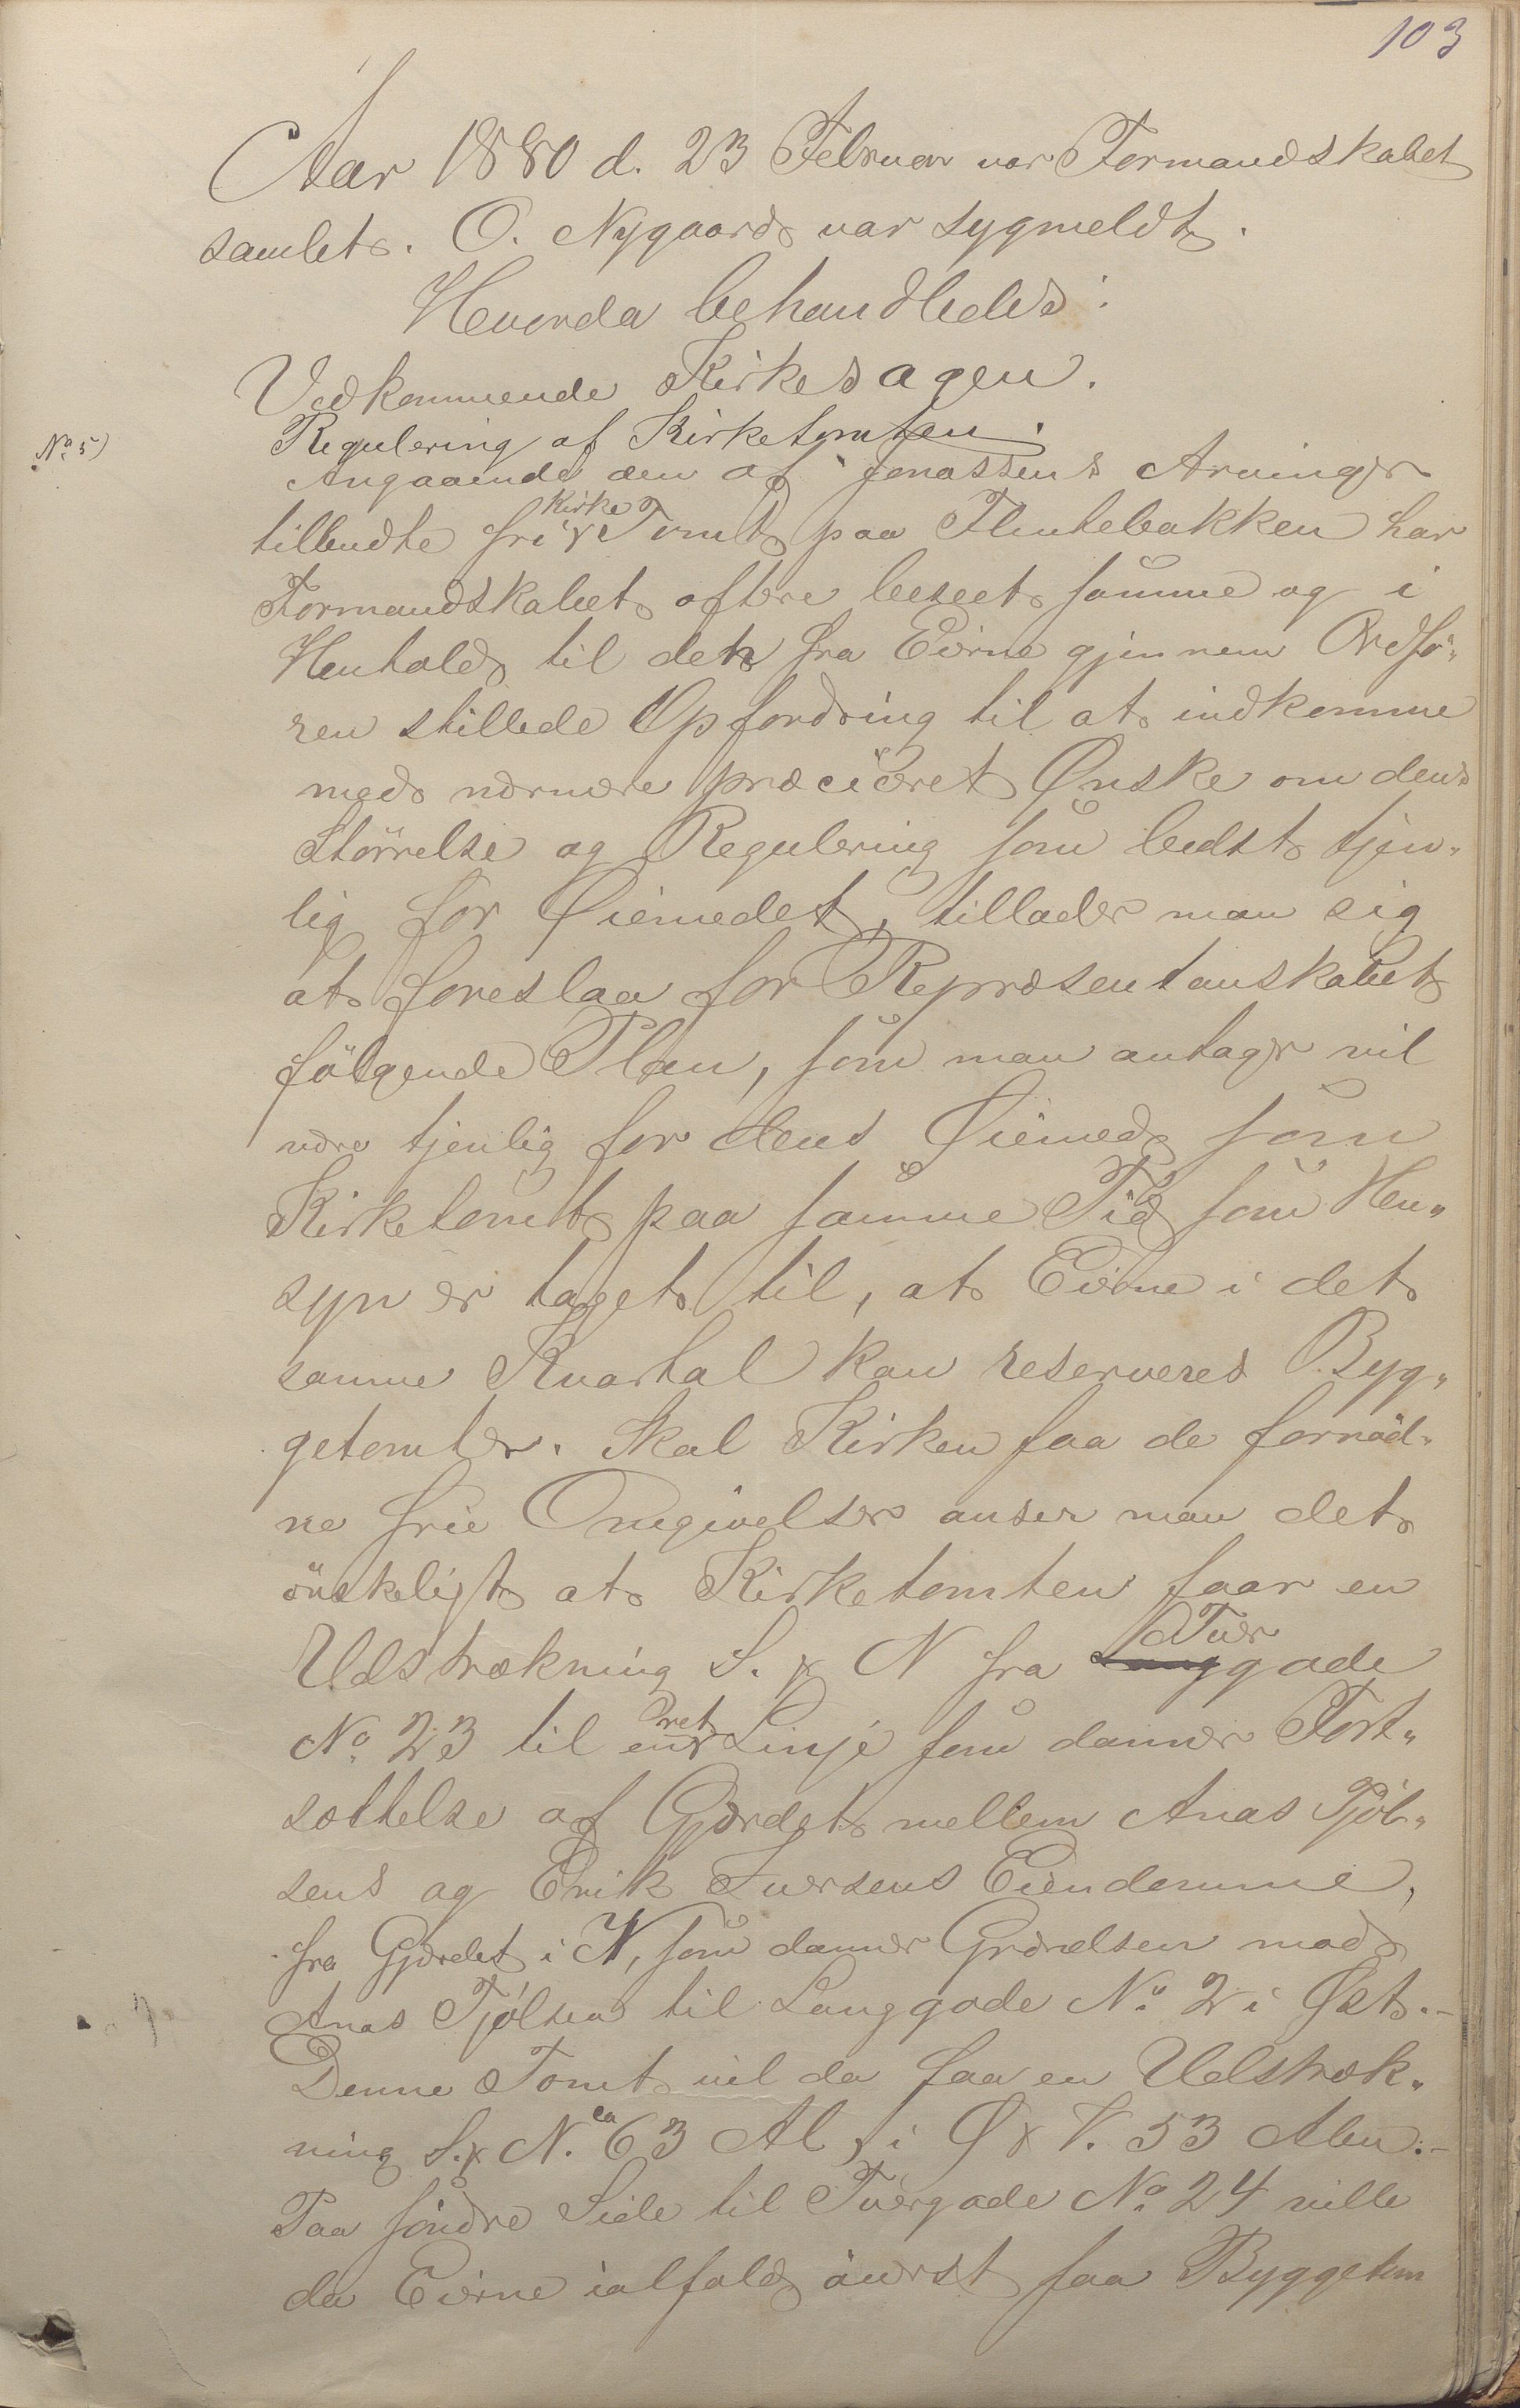 103
Aar 1880 d. 23 Februar var Formandskabet
samlet. O. Nygaard var sygmeldt.
Hvorda behandledes:
Vedkommende Kirkesagen.
Regulering af Kirketomten.
No 5)
Angaaende den af Jonassens Arvinger
kirke
tilbudte fri Tomt paa Flintebakken har
Formandskabet oftere beseet samme og i
Henhold til den fra Eierne gjennem Ordfö„
ren stillede Opfordring til at indkomme
med nærmere præciseret Ønske om dens
Störrelse og Regulering som bedst tjen„
lig for Øiemedet, tillader man sig
at foreslaa for Repræsentanskabet
fölgende Plan, som man antager vil
være tjenlig for dens Øiemed som
Kirketomt paa samme Tid som Hen„
syn er taget til, at Eierne i det
samme Kvartal kan reserveres Byg„
getomter. Skal Kirken faa de fornöd„
ne frie Omgivelser anser man det
önskeligt at Kirketomten faar en
Tver
Udstrækning S. & N fra Langgade
ret
No 23 til en Linje som danner Fort„
sættelse af Gjerdet mellem Anas Tjöl„
sens og Erik Iversens Eiendomme,
fra Gjerdet i V, som danner Grændsen mod
Anas Tjølsen til Langgade No 2 i Øst.–
Denne Tomt vil da faa en Udstræk„
ca
ning S. & N. 63 Al, i Ø & V. 53 Alen.–
Paa söndre Side til Tvergade No 24 ville
da Eierne ialfald överst faa Byggetom